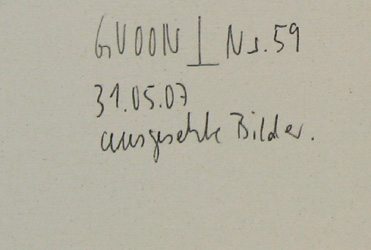 GVOON ⊥ Nr. 59
31.05.07
ausgesetzte Bilder.